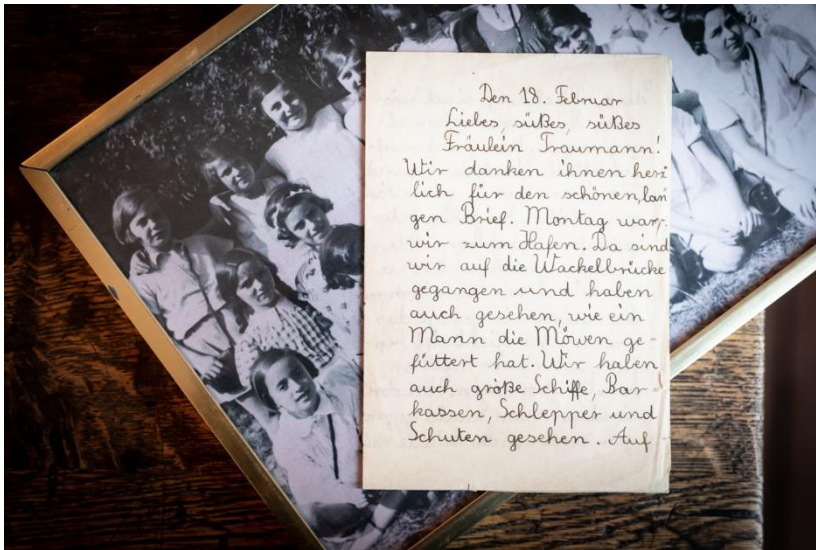 Den 18. Februar
Liebes, süßes, süßes
Fräulein Traumann!
Wir danken ihnen herz
lich für den schönen, lan
gen Brief. Montag war,
wir zum Hafen. Da sind
wir auf die Wackelbrücke
gegangen und haben
auch gesehen, wie ein
Mann die Möwen ge-
füttert hat. Wir haben
auch große Schiffe, Bar-
kassen, Schlepper und
Schuten gesehen. Auf